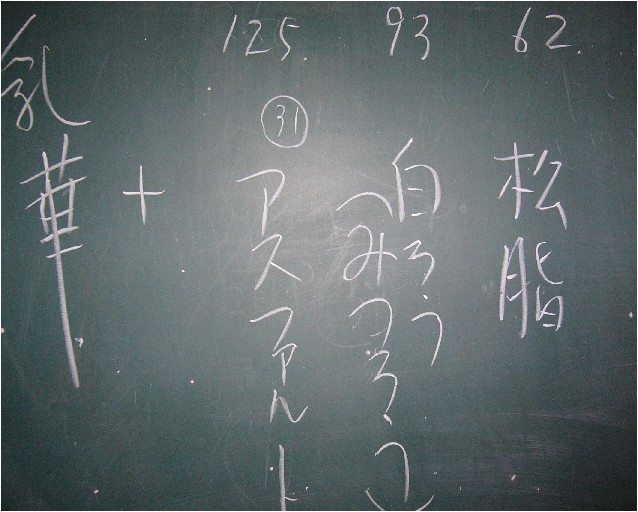 62.
松脂
93
白ろう
(みつろう)
125.
31
アスファルト
+
乳華